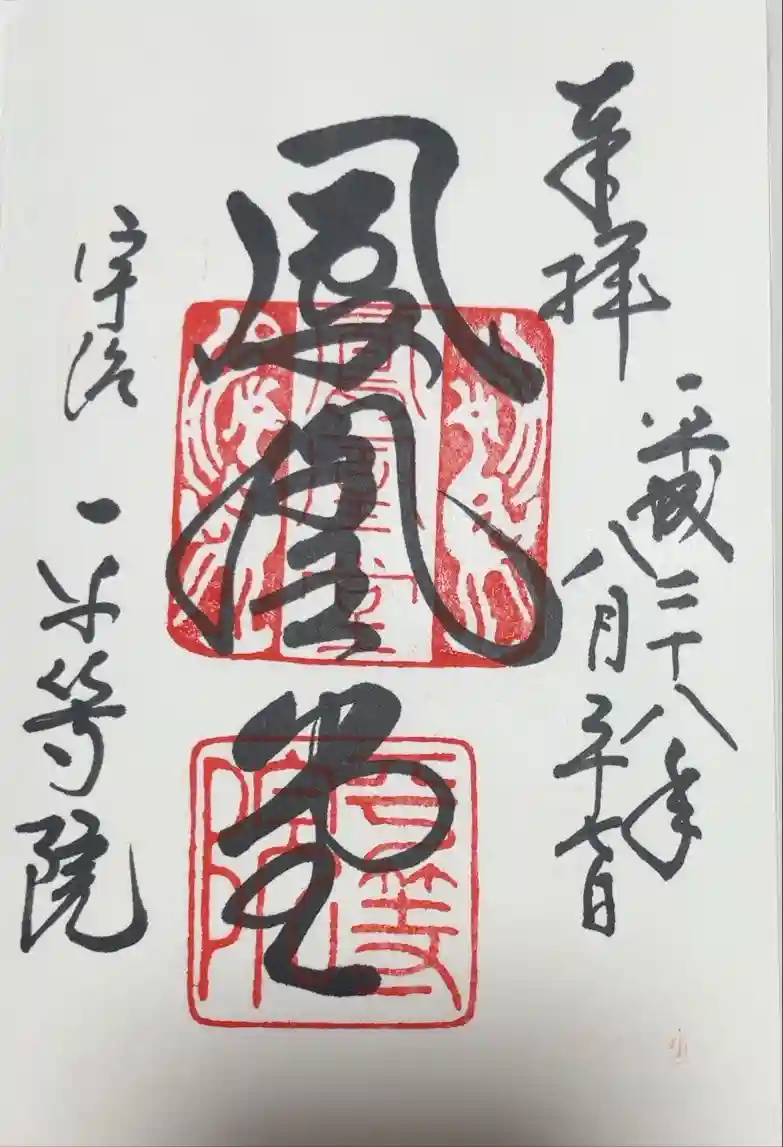 奉拝
平成二十八年
八月二十七日
鳳凰堂
宇治 平等院
鳳凰堂
平等院
小